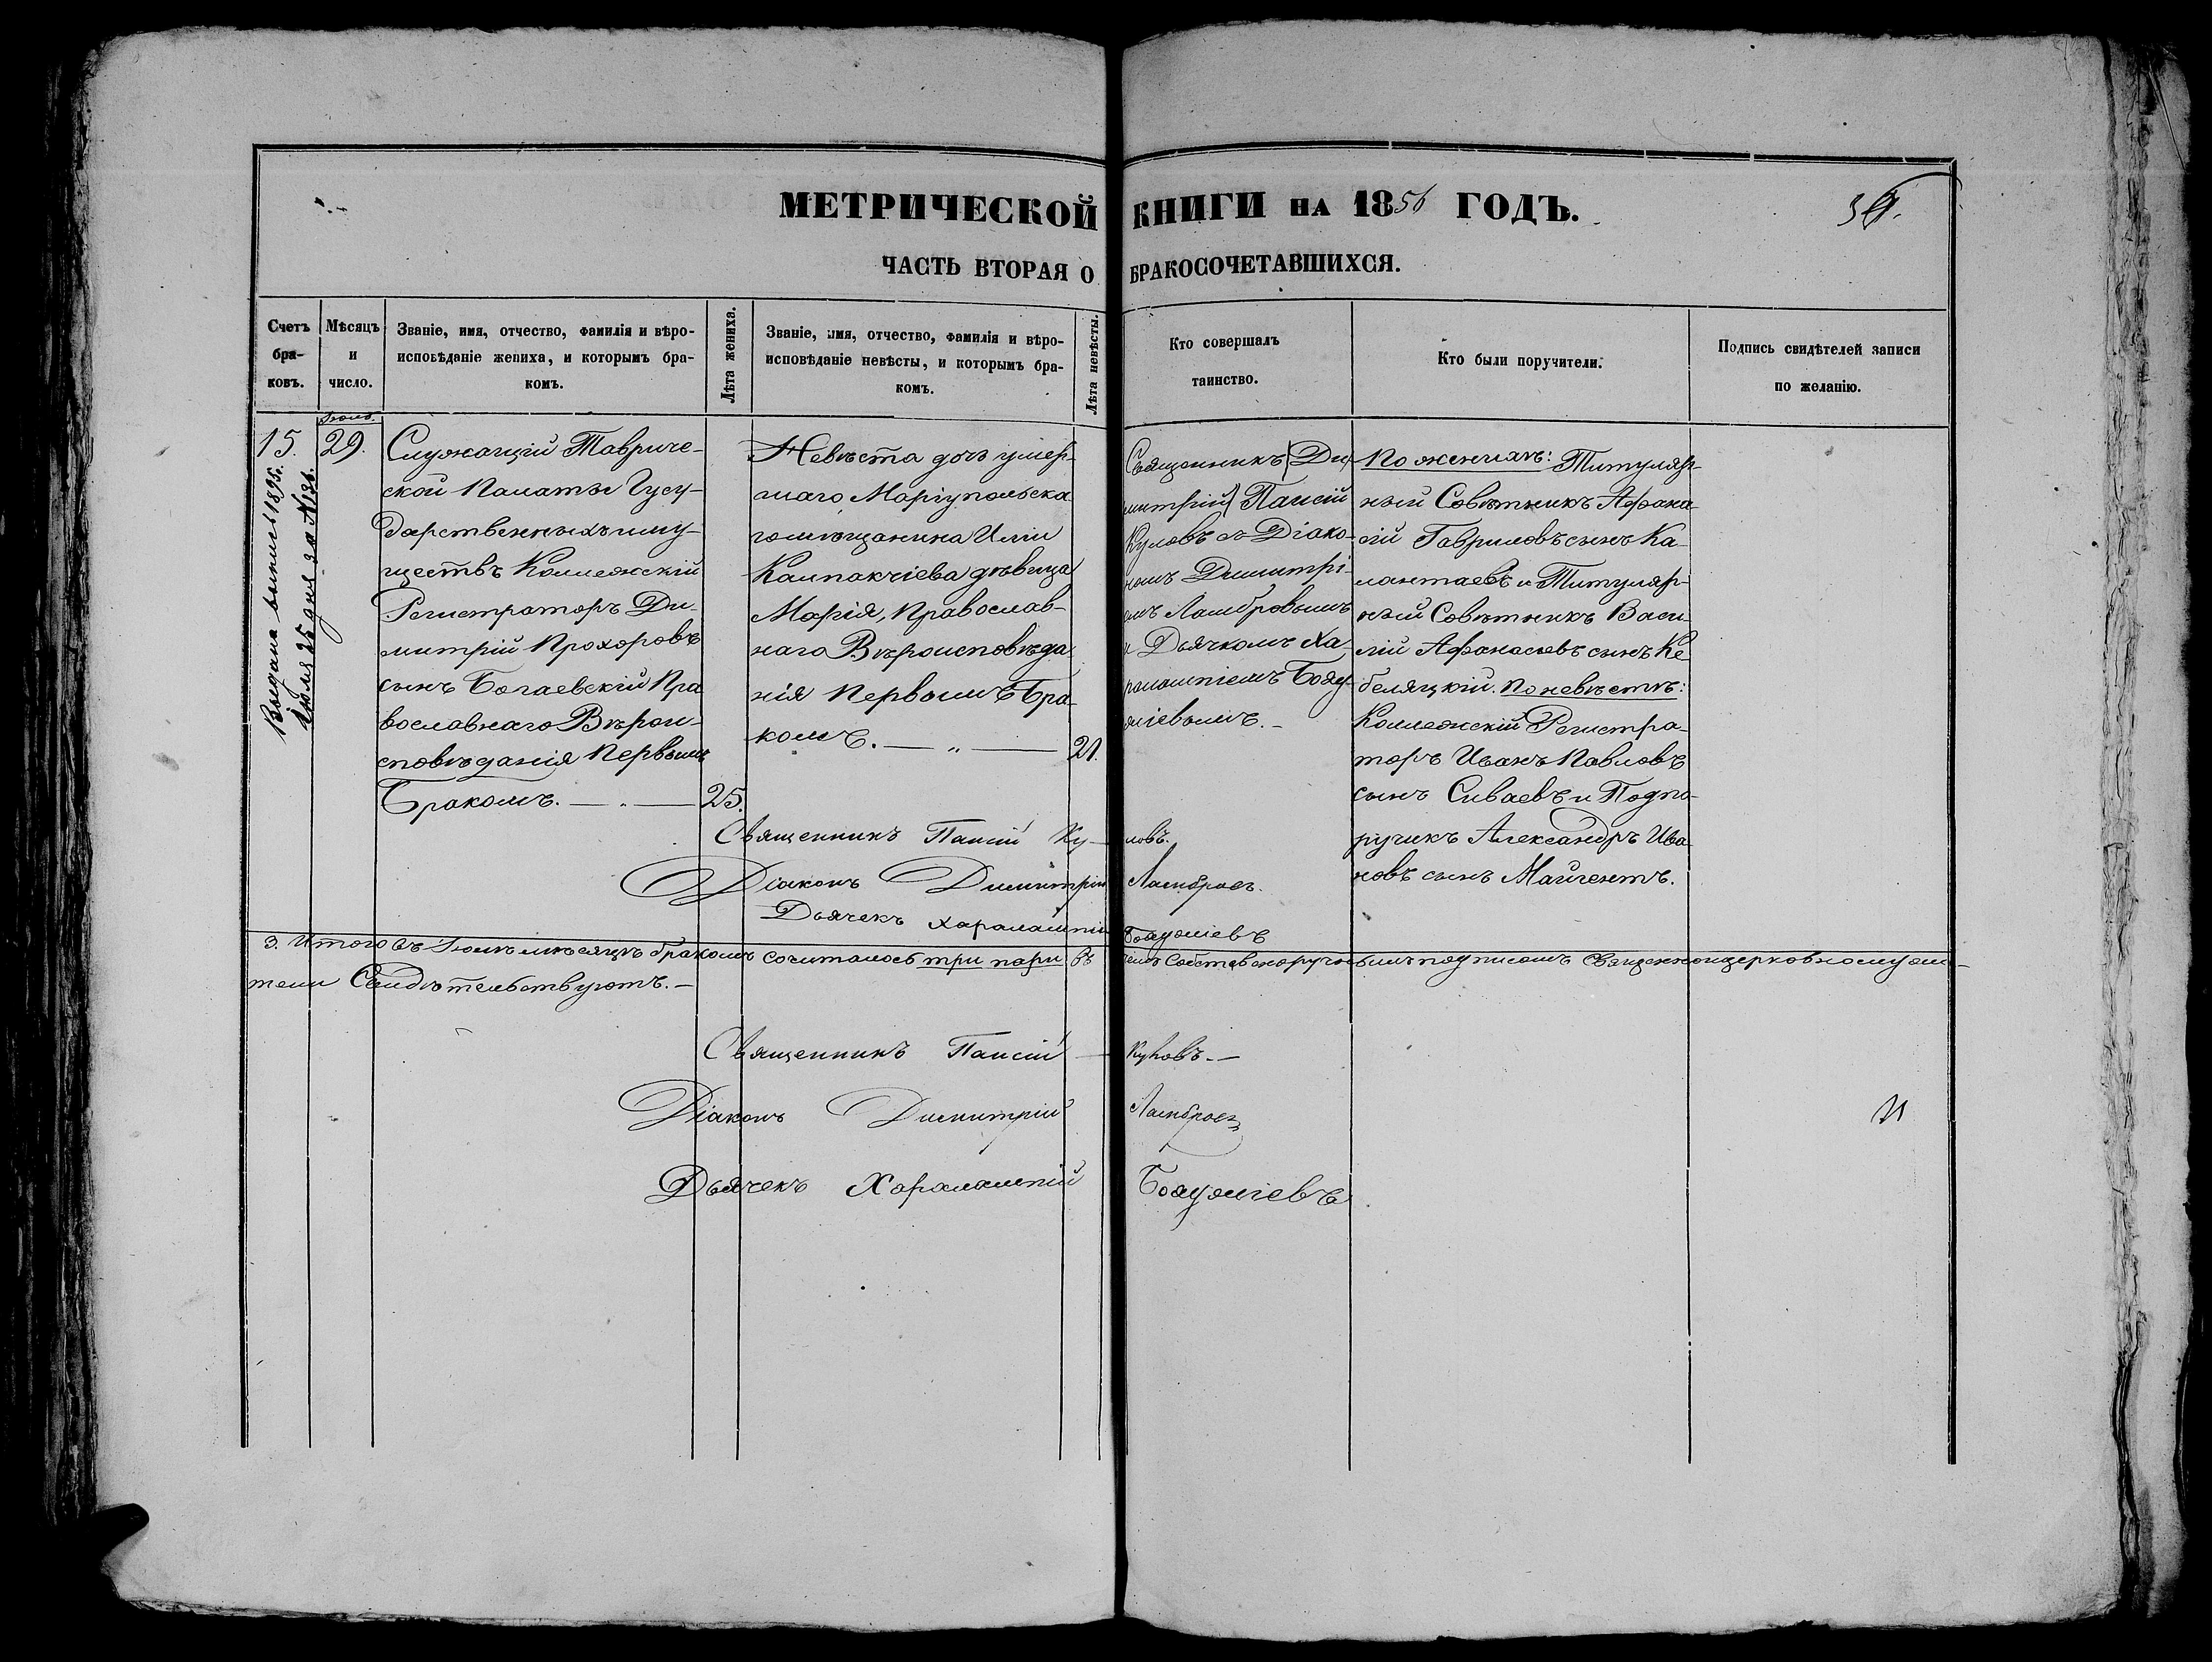 МЕТРИЧЕСКОЙ КНИГИ НА 1856 ГОДЪ.
ЧАСТЬ ВТОРАЯ О БРАКОСОЧЕТАВШИХСЯ.
Счетъ
бра-
ковъ.
Мѣсяцъ
и
число.
Званіе, имя, отчество, фамилія и вѣро-
исповѣданіе жениха, и которымъ бра-
комъ.
Лѣта жениха.
Званіе, имя, отчество, фамилія и вѣро-
исповѣданіе невѣсты, и которымъ бра-
комъ.
Лѣта невѣсты.
Кто совершалъ
таинство.
Кто были поручители.
Подпись свидѣтелей записи
по желанію.
15.
Выдана выпись 1895 г.
Іюля 25 дня за №136.
Іюль.
29.
Служащій Тавриче-
ской Палаты Гусу-
дарственныхъ иму-
ществъ Коллежскій
Регистраторъ Ди-
митрій Прохоровъ
сынъ Богаевскій Пра
вославнаго Вѣрои-
сповѣданія Первымъ
Бракомъ. — „ —
25.
Невѣста дочь умер-
шаго Маріупольска
го мѣщанина Иліи
Калпакчіева дѣвица
Марія, Православ-
наго Вѣроисповѣда
нія Первымъ Бра-
комъ. — „ —
21.
Священникъ (Ди-
митрій) Паисій
Куловъ съ Діако-
номъ Димитрі-
емъ Ламбровымъ
и Дьячкомъ Ха-
ралампіемъ Бояу-
жіевымъ. -
По женихѣ: Титуляр-
ный Совѣтникъ Афана-
сій Гавриловъ сынъ Ка-
лантаевъ и Титуляр-
ный Совѣтникъ Васи-
лій Афанасьевъ сынъ Ке
беляцкій. По невѣстѣ:
Коллежскій Регистра-
торъ Иванъ Павловъ
сынъ Сиваевъ и Подпо-
ручикъ Александръ Ива
новъ сынъ Майгентъ.
Священникъ Паисій Ку- ловъ.
Діаконъ Димитрій Ламбровъ.
Дьячекъ Харалампій
3. Итого въ Іюлѣ мѣсяцѣ бракомъ сочиталось три пари въ чемъ Собственноручнымъ подписомъ Священноцерковнослужи-
тели Свидѣтельствуютъ. -
Священникъ Паисій — Куловъ. -
Діаконъ Димитрій Ламбровъ
Дьячекъ Харалампій